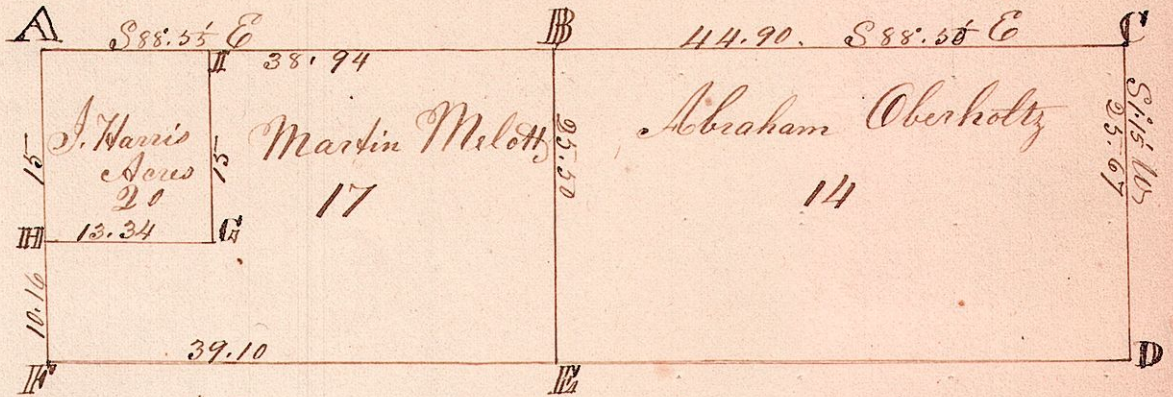 A S88.55 E B 44.90. S88.50 E C
I 38.94
J. Harris
Acres
20
15
15
Martin Melott
17
25.50
Abraham Oberholtz
14
25.67
H 13.34 G
10.16
39.10
F E D